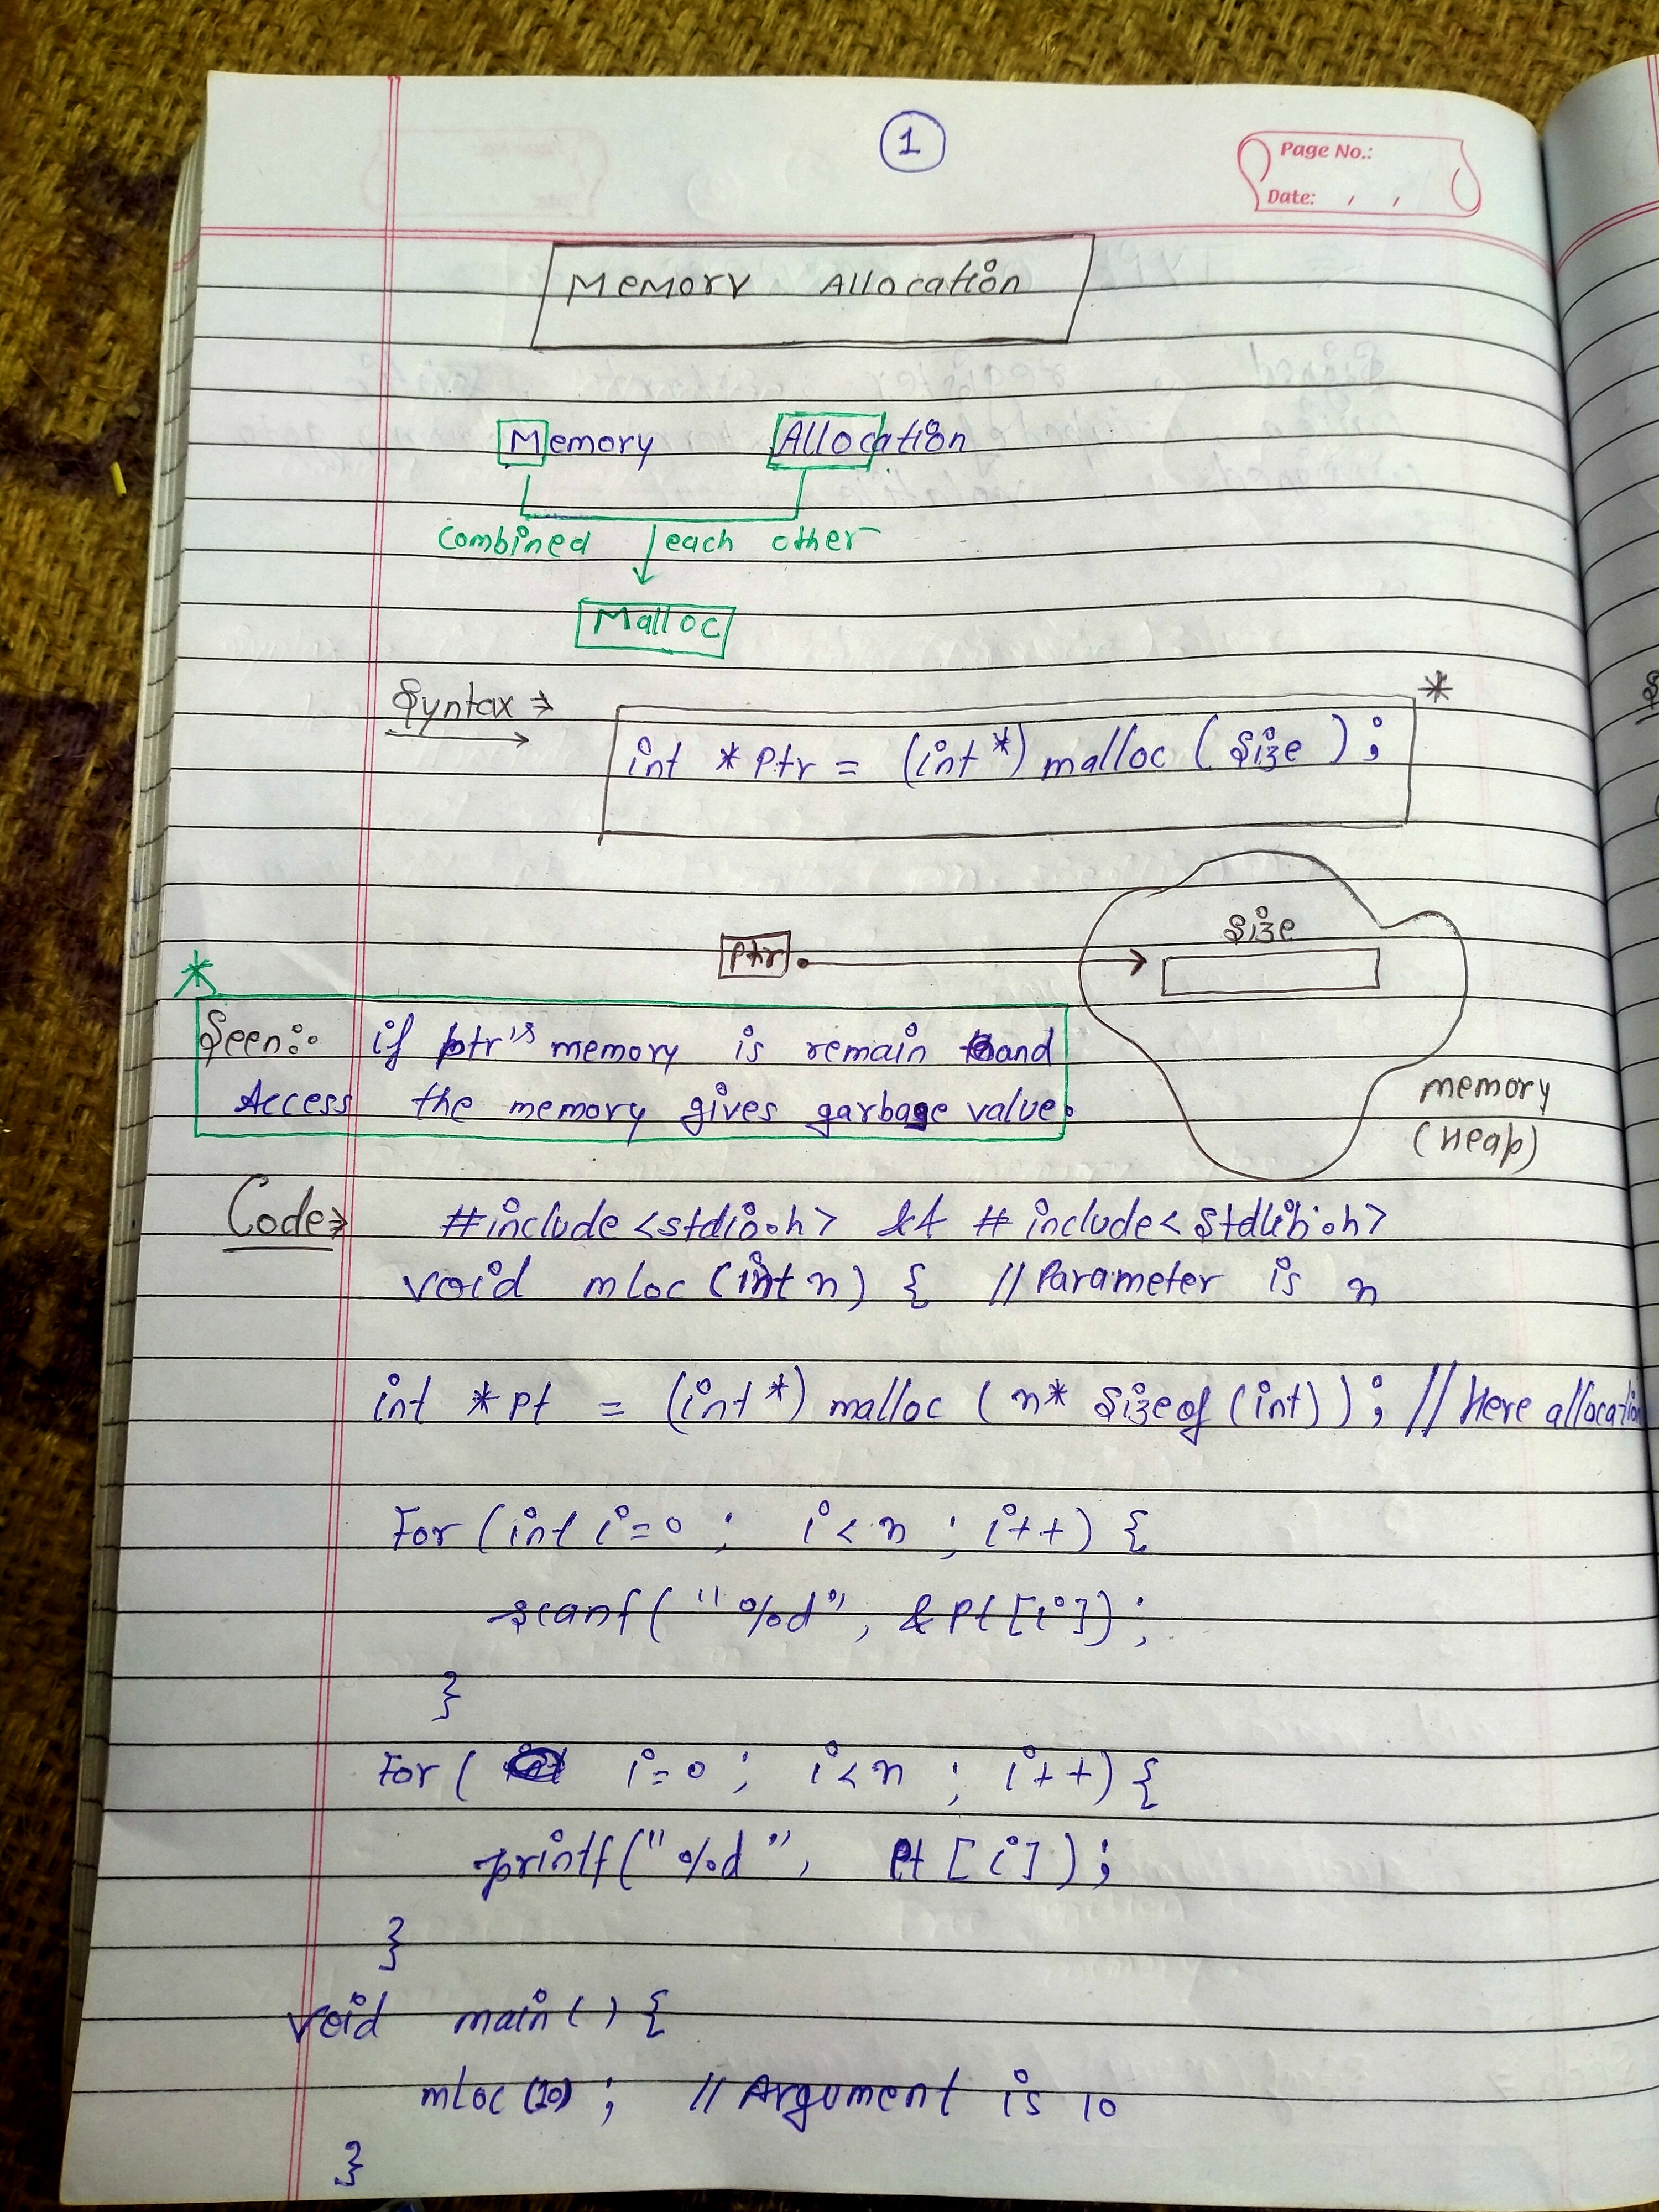 1
Page No.:
Date: , ,
Memory Allocation
Memory Allocation
Combined each other
Malloc
Syntax ⇒
*
int *ptr = (int*) malloc (size);
size
ptr
*
Seen:- if ptr's memory is remain and
Access the memory gives garbage value.
memory
(Heap)
Code⇒ #include <stdio.h> && #include<stdlib.h>
void mloc (int n) { // Parameter is n
int *pt = (int*) malloc (n* sizeof (int)); // Here allocation
For (int i=0 ; i<n ; i++) {
scanf("%d", &pt[i]);
}
For ( i=0 ; i<n ; i++) {
printf("%d", pt[i]);
}
void main() {
mloc(10); // Argument is 10
}